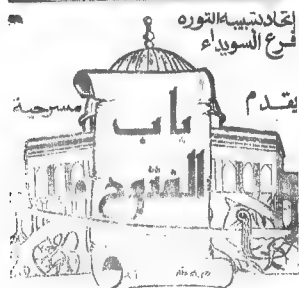 إتحاد شبيبة الثوره
فرع السويداء
يقدم
مسرحية
باب
الفتوح